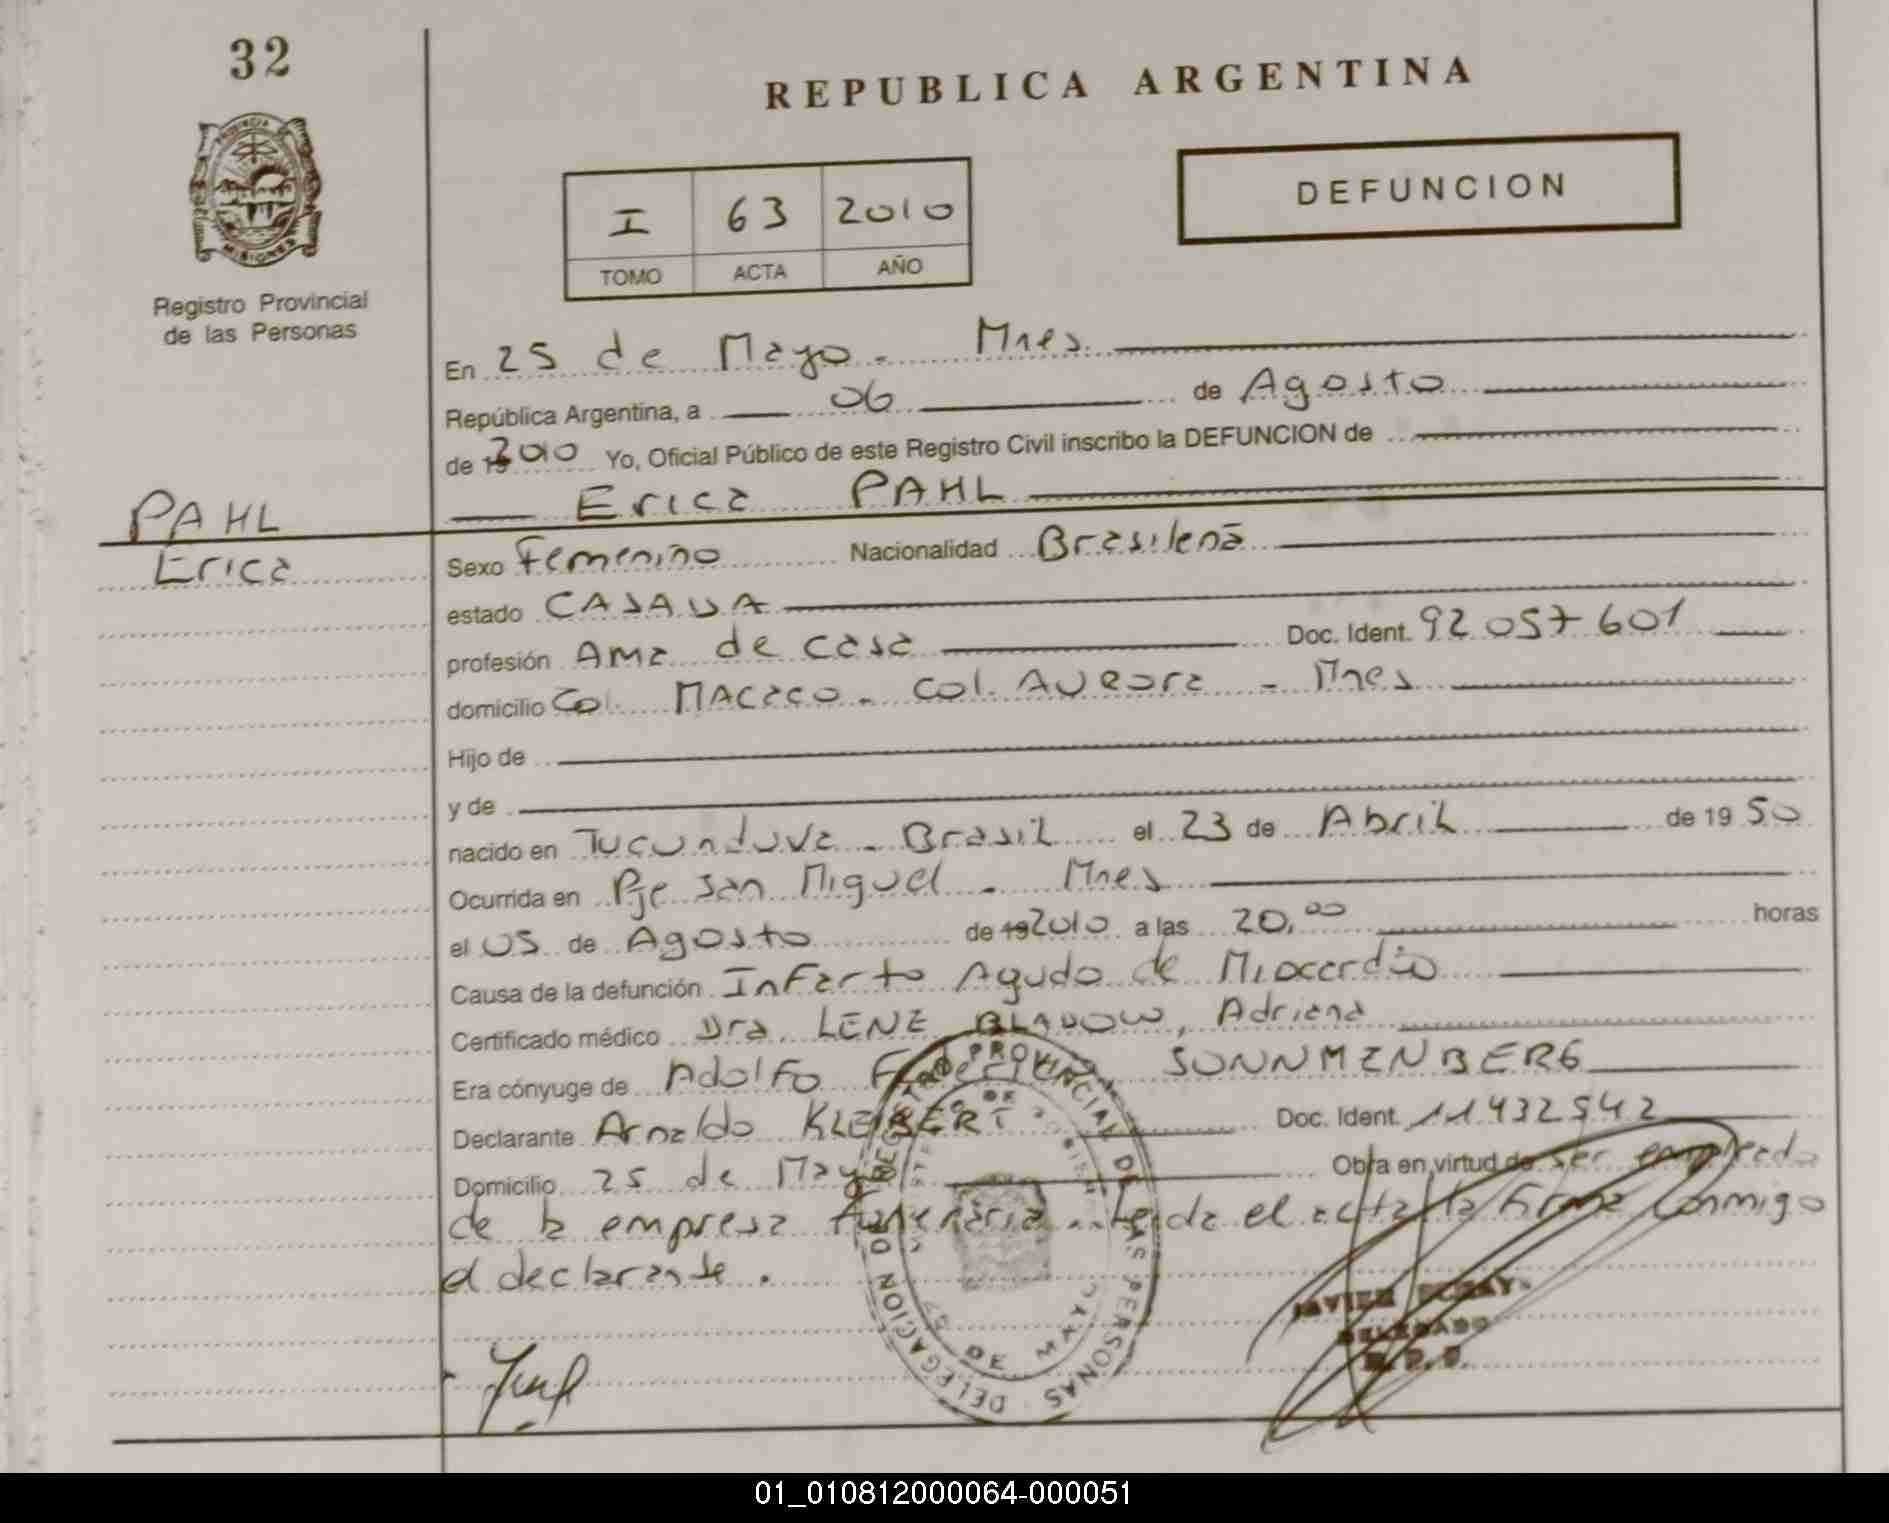 32
REPUBLICA ARGENTINA
DEFUNCION
I 63 2010
TOMO ACTA AÑO
PROVINCIA DE
MISIONES
Registro Provincial
de las Personas
En 25 de Mayo - Mnes
República Argentina, a 06 de Agosto
de 2010 Yo, Oficial Público de este Registro Civil inscribo la DEFUNCION de
Erica PAHL
PAHL
Erica
Sexo Femenino Nacionalidad Brasileña
estado CASADA
profesión Ama de casa Doc. Ident. 92 057 601
domicilio Col. MAcaco - Col. AURORA - Mnes
Hijo de
y de
nacido en Tucunduva - Brasil el 23 de Abril de 19 50
Ocurrida en Pje San Miguel - Mnes
el 05 de Agosto de 19 2010 a las 20,00 horas
Causa de la defunción Infarto Agudo de Miocardio
Certificado médico Dra. LENZ BLADOW, Adriana
Era cónyuge de Adolfo Federico SONNMENBERG
Declarante Arnaldo KLEIBERT Doc. Ident. 11432542
Domicilio 25 de Mayo Obra en virtud de ser empleado
de la empresa funeraria - Leida el acta la firma conmigo
el declarante.
DELEGACION DE REGISTRO PROVINCIAL DE LAS PERSONAS
25 DE MAYO
JAVIER
DELEGADO
R.P.P.
01_010812000064-000051